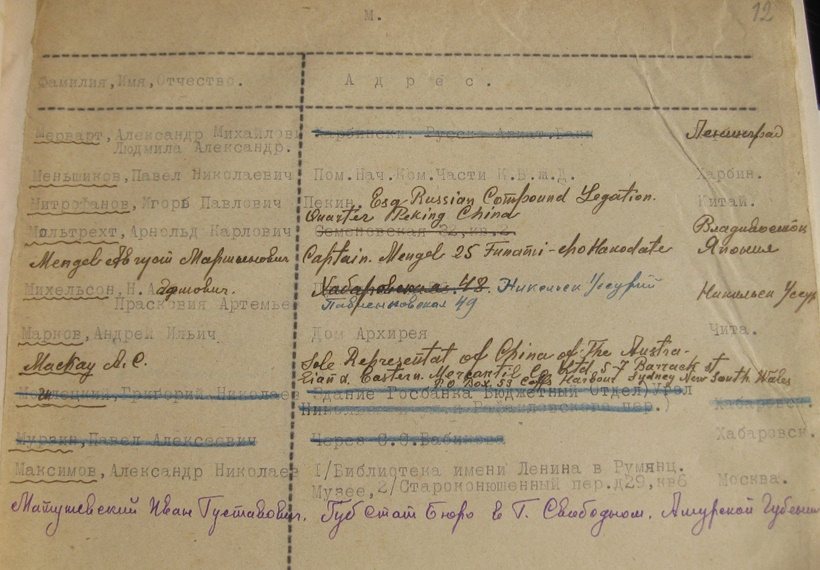 12
М.
Фамилия,Имя,Отчество. Адрес.
Мерварт,Александр Михайлови Ленинград
Людмила Александр.
Меньшиков,Павел Николаевич Пом.Нач.Ком.Части К.В.ж.Д. Харбин.
Митрофанов,Игорь Павлович Пекин. Esq Russian Compound Legation. Китай.
Quarter Peking China
Мольтрехт,Арнольд Карлович Семеновская 22,кв.2. Владивосток
Мендель Август Мартынович Captain. Mengel 25 Funami-cho Hakodate Япония
Михельсон,Н. Хабаровская 48. Никольск Уссурий Никольск Уссур
Прасковия Артемье
Марков,Андрей Ильич Дом Архирея Чита.
MacKay A.C. Sole Representat of China of The Austra-
lian & Eastern. Mercantil Co Ltd 5-7 Barrack st
P O Box 53 Coffs Harbour Sydney New South Wales
Григорий Николаев Здание Госбанка Бюджетный Отдел/Угол Хабаровск.
Мурзин,Павел Алексеевич Через С.С.Бабикова Хабаровск.
Максимов,Александр Николаев I/Библиотека имени Ленина в Румянц. Москва.
Музее,2/Староконюшенный пер.д29,кв6
Матушевский Иван Густавович. Губ Стат Бюро в Г. Свободном. Амурской Губернии